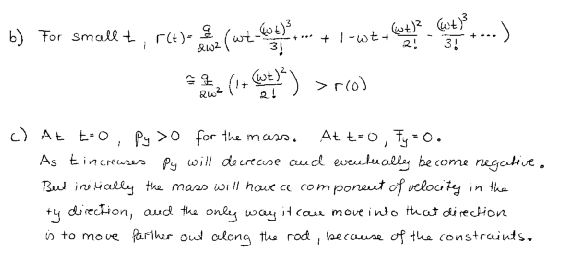 b) For small t, r(t) = g/2ω² (ωt - (ωt)³/3! + ... + 1 - ωt + (ωt)²/2! - (ωt)³/3! + ...)
≅ g/2ω² (1 + (ωt)²/2!) > r(0)
c) At t=0, Py >0 for the mass. At t=0, Fy=0.
As t increases Py will decrease and eventually become negative.
But initially the mass will have a component of velocity in the
+y direction, and the only way it can move into that direction
is to move farther out along the rod, because of the constraints.